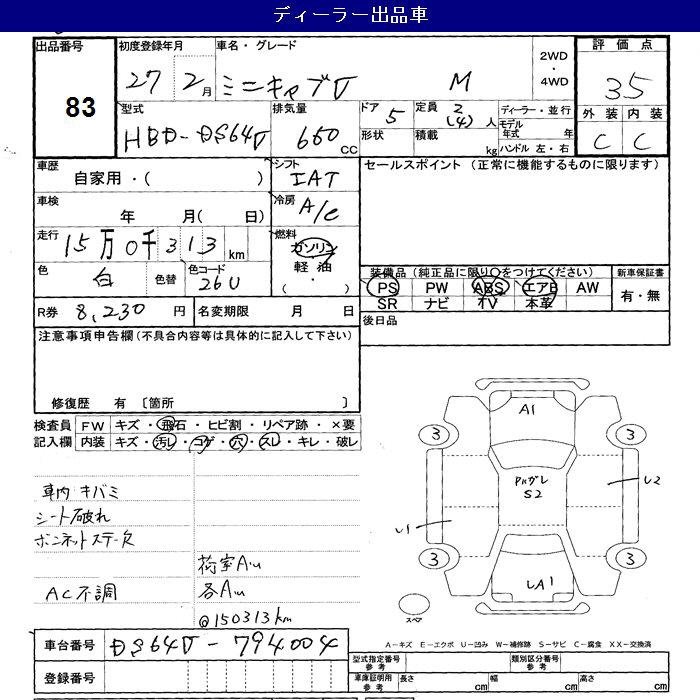 ディーラー出品車
出品番号 初度登録年月 車名・グレード 2WD・4WD 評価点
83 27 2月 ミニキャブV M 3.5
型式 排気量 ドア 定員 ディーラー・並行 外装 内装
HBD-DS64V 660 CC 5 2(4)人 モデル年式 年 C C
形状 積載 kg ハンドル 左・右
車歴 シフト セールスポイント (正常に機能するものに限ります)
自家用・( ) IAT
車検 冷房
年 月( 日) A/C
走行 燃料
15万0千313km ガソリン
軽油
・
( )
色 色替 色コード 装備品(純正品に限り○をつけてください) 新車保証書
白 26U PS PW ABS エアB AW 有・無
SR ナビ TV 本革
R券 8,230 円 名変期限 月 日 後日品
注意事項申告欄(不具合内容等は具体的に記入して下さい)
修復歴 有 〔箇所 〕
検査員 FW キズ・飛石・ヒビ割・リペア跡・×要
記入欄 内装 キズ・汚レ・コゲ・穴・スレ・キレ・破レ
車内キバミ
シート破れ
ボンネットステー欠
荷室Aいi
AC不調 各Aいi
@150313km
A1
3 3
Pんガレ
S2
U2
U1
3 3
LA1
スペア
A-キズ E-エクボ U-凹み W-補修跡 S-サビ C-腐食 XX-交換済
車台番号 DS64V-794004
型式指定番号 参考 類別区分番号 参考
登録番号 車庫証明用 参考 長さ cm 幅 cm 高さ cm